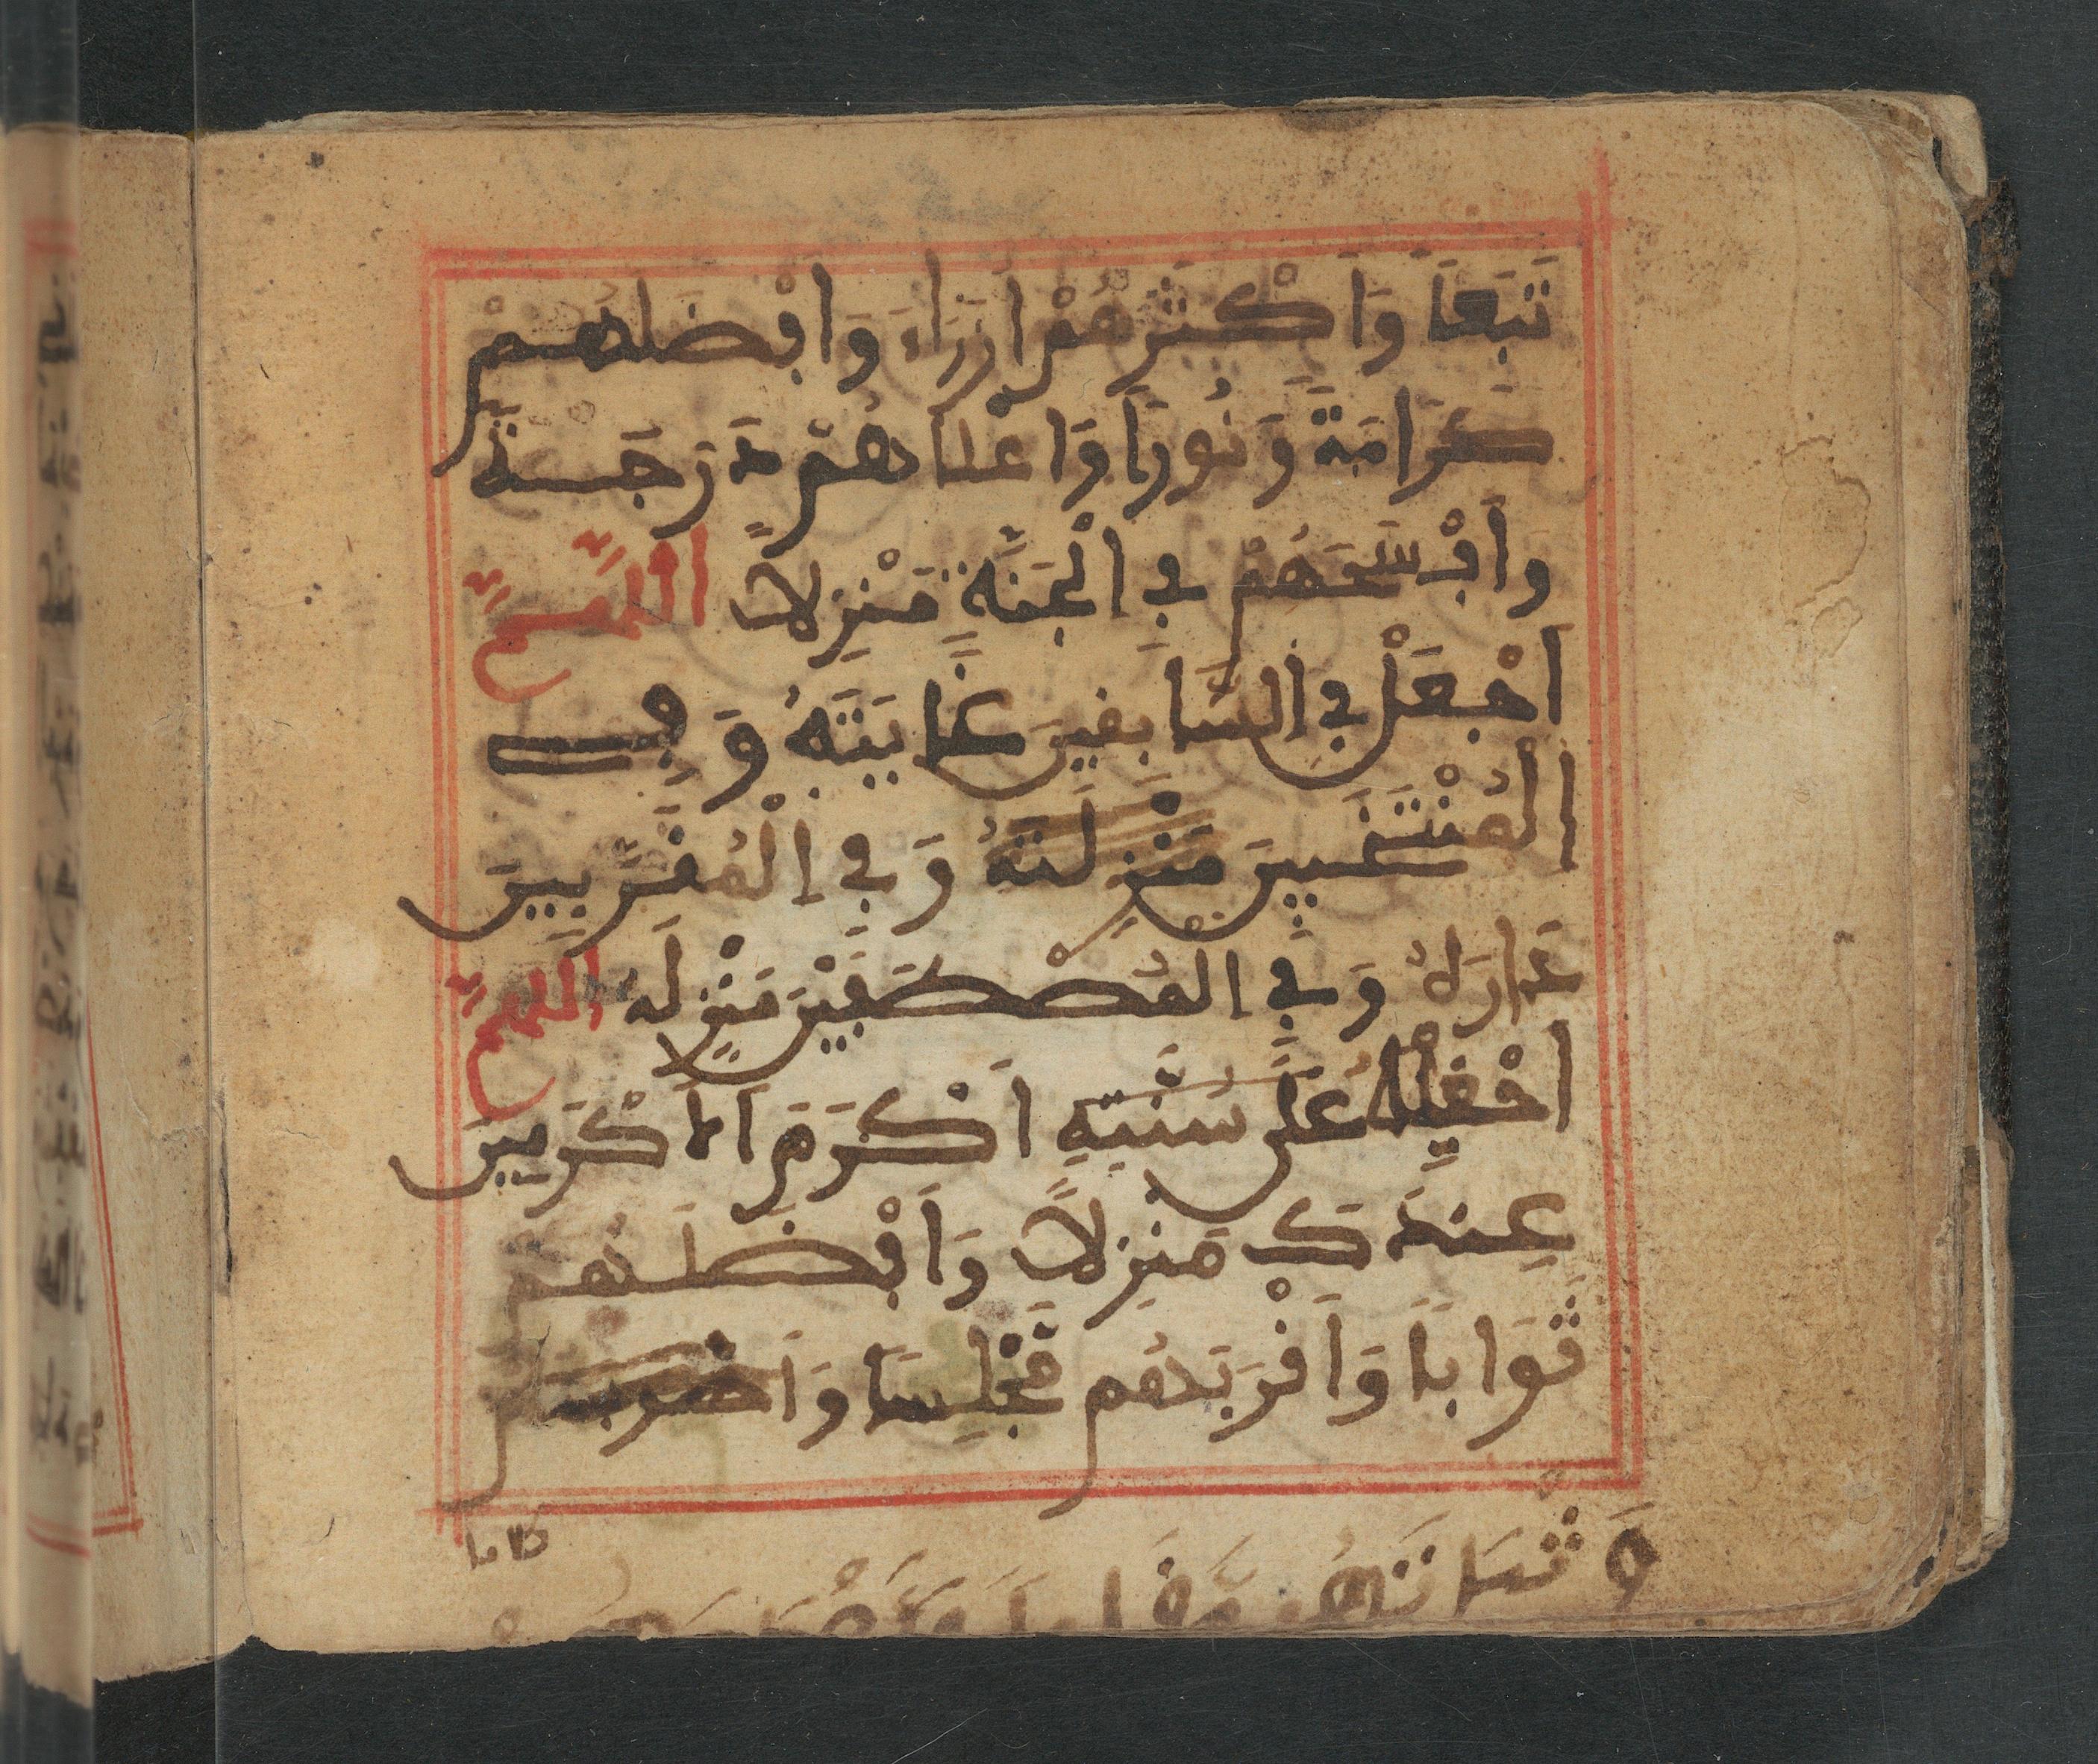 تَبَعًا وَاَكْثَرِهِمْ ازَرَاءَ وَاَفْضَلِهِمْ
كَرَامَةً وَنُورًا وَاَعْلَاهُمْ دَرَجَةً
وَاَفْسَحَهُمْ فِي الْجَنَّةِ مَنْزِلًا اللَّهُمَّ
اجْعَلْ فِي السَّابِقِينَ غَايَتَهُ وَفِي
الْمُنْتَخَبِينَ مَنْزِلَتَهُ وَفِي الْمُقَرَّبِينَ
دَارَهُ وَفِي الْمُصْطَفَيْنَ مَنْزِلَهُ اللَّهُمَّ
اجْعَلْهُ اَكْرَمَ الْاَكْرَمِينَ
عِنْدَكَ مَنْزِلًا وَاَفْضَلَهُمْ
ثَوَابًا وَاَقْرَبَهُمْ مَجْلِسًا
كلاما